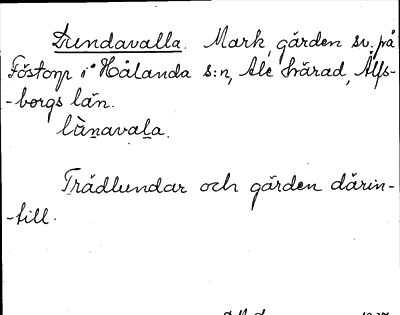 Lundavalla. Mark, gården sv. på
Föstorp i Hålanda s:n, Ale härad, Älfs-
-borgs län.
lùnavala.
Trädlundar och gården därin-
-till.